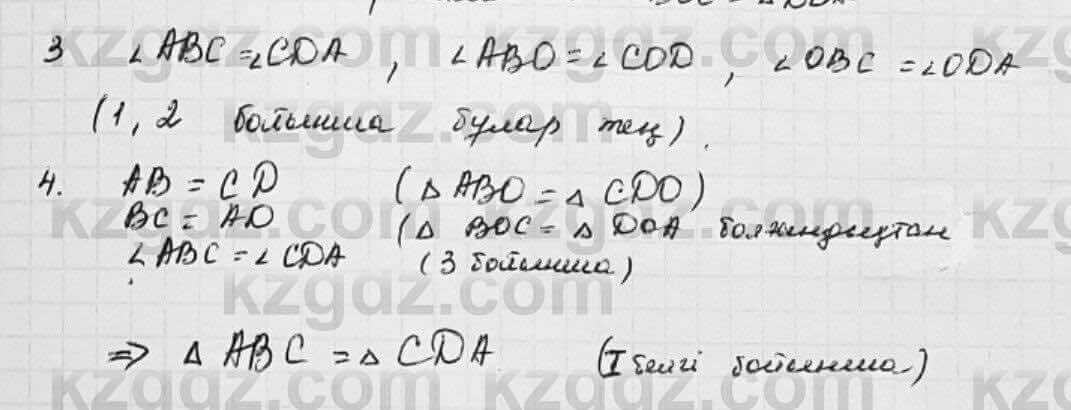 ВОС = △ DOA
3 ∠ABC = ∠CDA , ∠ABO = ∠COD , ∠OBC = ∠ODA
(1, 2 бойынша булар тең).
4. AB = CD (△ ABO = △ CDO)
BC = AD (△ BOC = △ DOA болғандықтан
∠ABC = ∠CDA (3 бойынша)
⇒ △ ABC = △ CDA (I белгі бойынша)